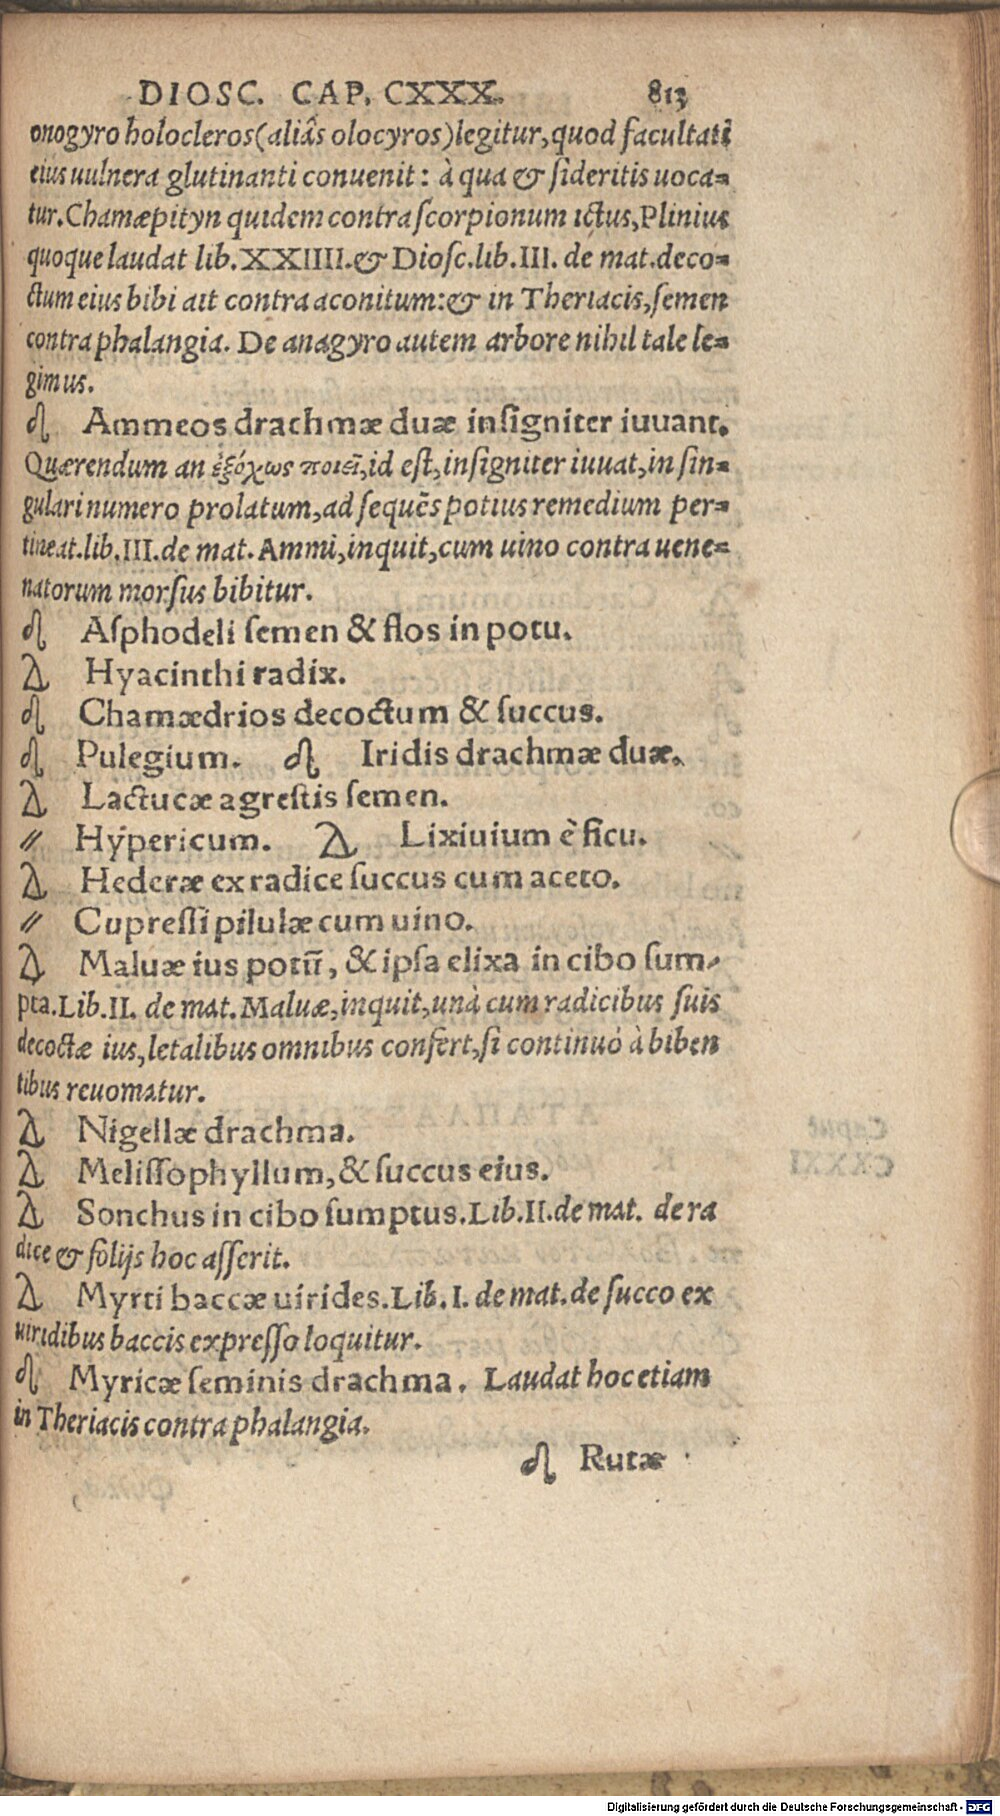 DIOSC. CAP. CXXX. 813
onogyro holocleros (aliâs olocyros) legitur, quod facultati
eius uulnera glutinanti conuenit: à qua & sideritis uoca-
tur. Chamæpityn quidem contra scorpionum ictus, Plinius
quoque laudat lib. XXIIII. & Diosc. lib. III. de mat. deco-
ctum eius bibi ait contra aconitum: & in Theriacis, semen
contra phalangia. De anagyro autem arbore nihil tale le-
gimus.
Ammeos drachmæ duæ insigniter iuuant.
Quærendum an ἐξόχως ποιεῖ, id est, insigniter iuuat, in sin-
gulari numero prolatum, ad sequẽs potius remedium per-
tineat. lib. III. de mat. Ammi, inquit, cum uino contra uene-
natorum morsus bibitur.
Asphodeli semen & flos in potu.
Hyacinthi radix.
Chamædrios decoctum & succus.
Pulegium. Iridis drachmæ duæ.
Lactucæ agrestis semen.
〃 Hypericum. Lixiuium è ficu.
Hederæ ex radice succus cum aceto.
〃 Cupressi pilulæ cum uino.
Maluæ ius potũ, & ipsa elixa in cibo sum-
pta. Lib. II. de mat. Maluæ, inquit, unà cum radicibus suis
decoctæ ius, letalibus omnibus confert, si continuò à biben
tibus reuomatur.
Nigellæ drachma.
Melissophyllum, & succus eius.
Sonchus in cibo sumptus. Lib. II. de mat. de ra
dice & folijs hoc asserit.
Myrti baccæ uirides. Lib. I. de mat. de succo ex
uiridibus baccis expresso loquitur.
Myricæ seminis drachma. Laudat hoc etiam
in Theriacis contra phalangia.
Rutæ
Digitalisierung gefördert durch die Deutsche Forschungsgemeinschaft - DFG